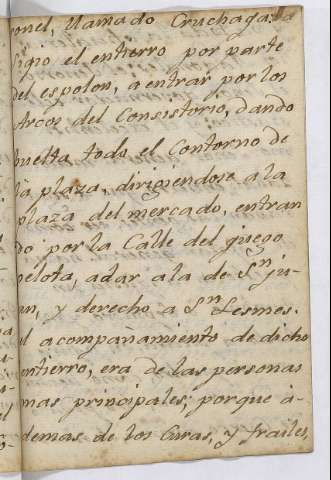 ronel, llamado Cruchaga, se
ligio el entierro por parte
del espolon, a entrar por los
Arcos del Consistorio, dando
buelta todo el Contorno de
la plaza, dirigiendose a la
plaza del mercado, entran
do por la Calle del juego
pelota, a dar a la de Sn ju-
an, y derecho a Sn Lesmes.
el acompañamiento de dicho
entierro, era de las personas
mas principales; porque a-
demas de los Curas, y frailes,